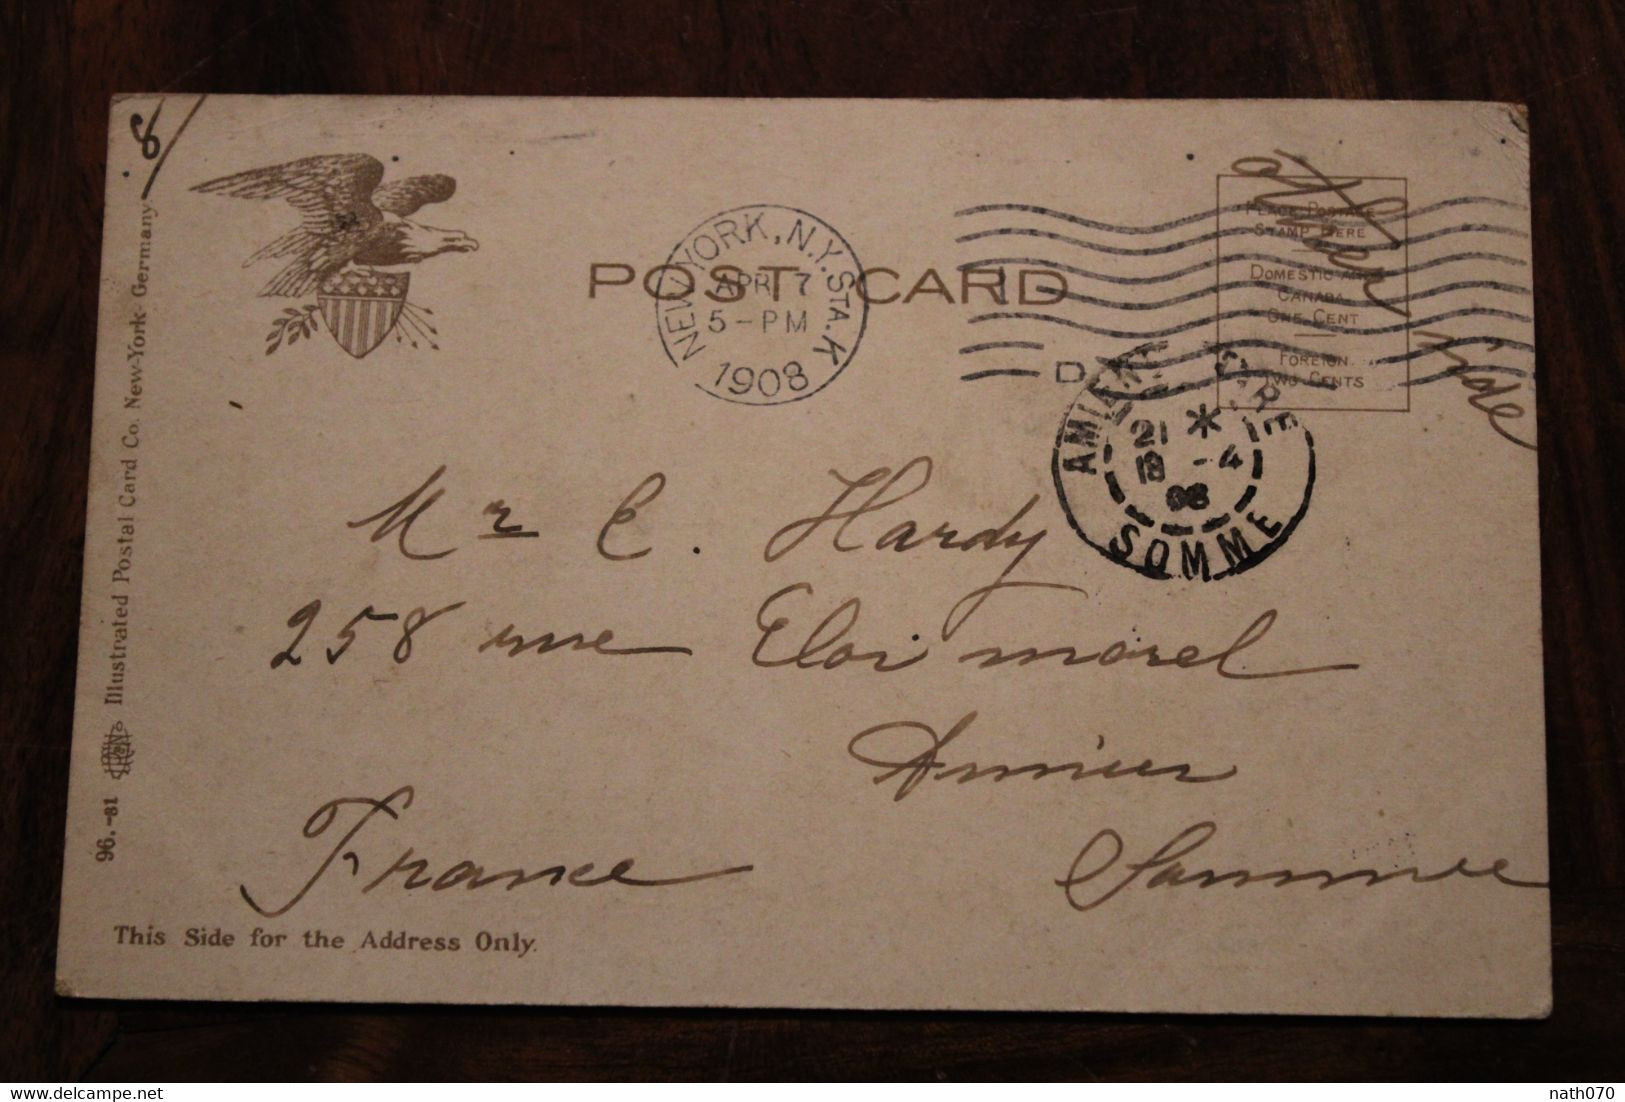 8
POST CARD
NEW YORK, N.Y. STA. K
APR 7
5-PM
1908
D
PLACE POSTAGE
STAMP HERE
DOMESTIC AND
CANADA
ONE CENT
FOREIGN
TWO CENTS
other side
AMIENS GARE
21 *
18 -4
08
SOMME
Mr E. Hardy
258 rue Eloi morel
Amiens
France
Somme
This Side for the Address Only.
96.-81 Illustrated Postal Card Co. New-York- Germany
nath070